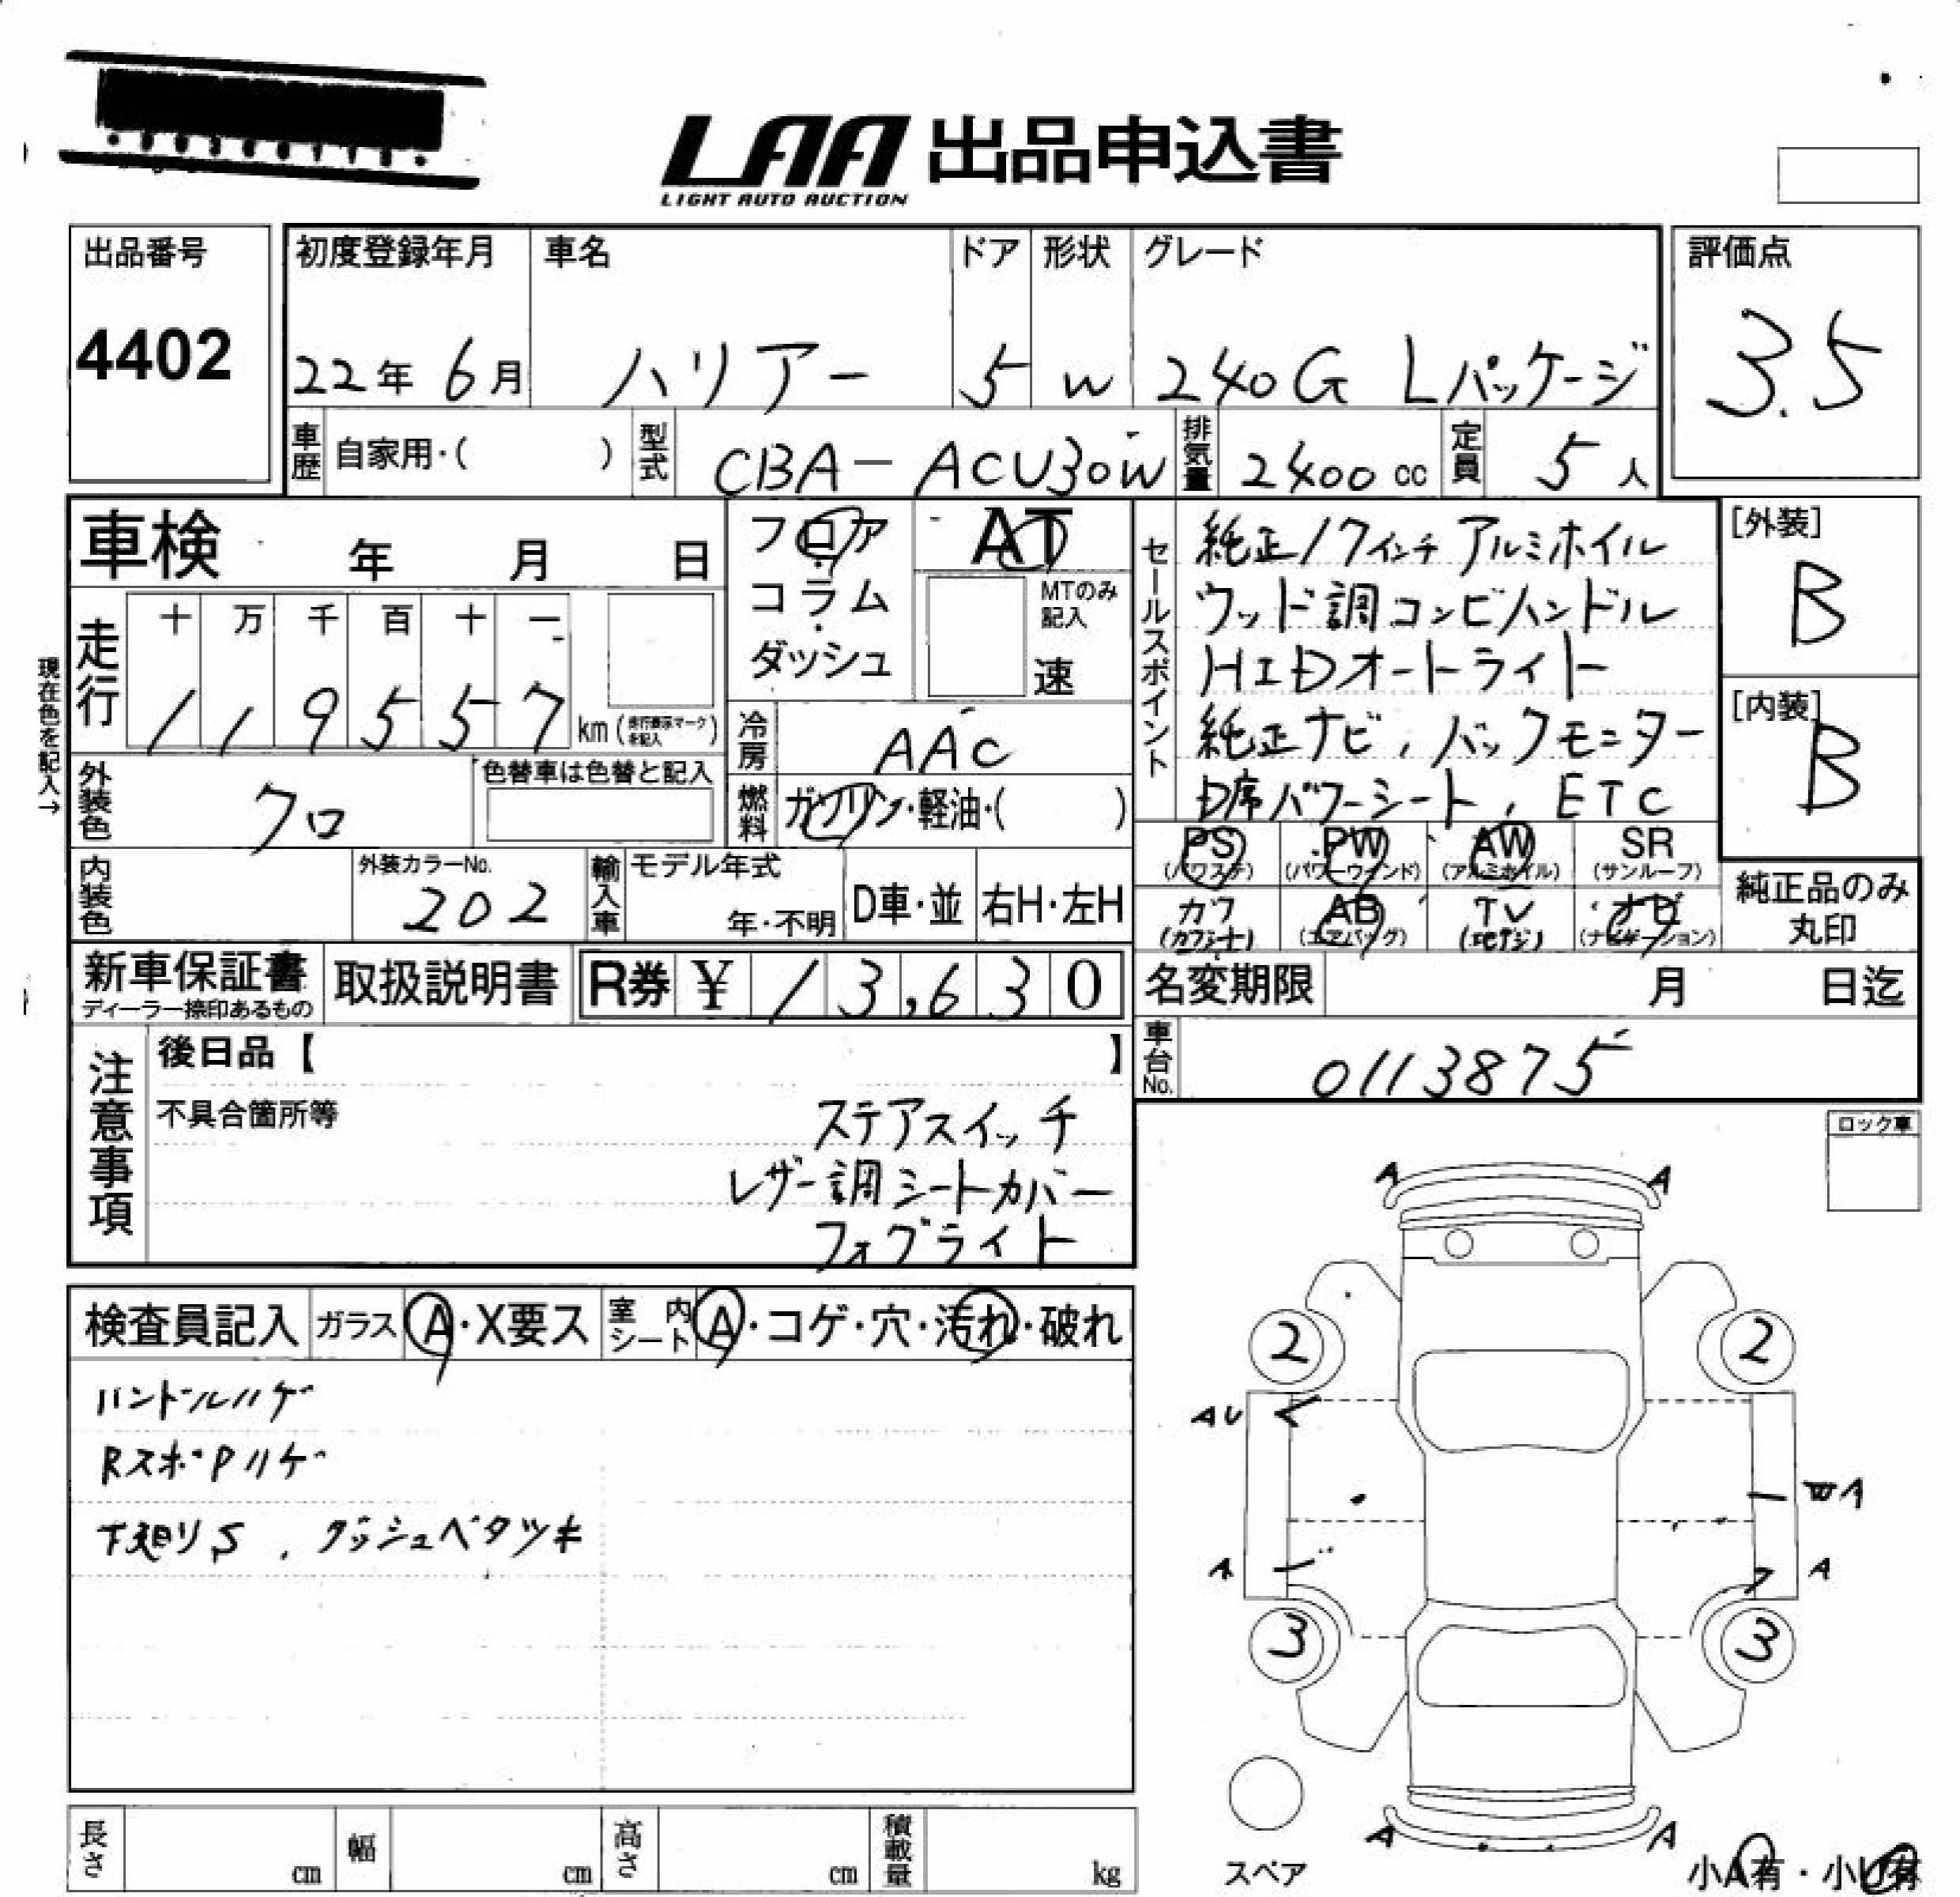 LAA 出品申込書
LIGHT AUTO AUCTION
出品番号
4402
初度登録年月 車名 ドア 形状 グレード
22年 6月 ハリアー 5 W 240G Lパッケージ
評価点
3.5
車歴 自家用・( ) 型式 CBA-ACU30W 排気量 2400 cc 定員 5 人
車検 年 月 日
フロア AT
コラム MTのみ記入
ダッシュ 速
走行 十 万 千 百 十 一
1 1 9 5 5 7 km (走行表示マークを記入)
現在色を記入→
冷房 AAC
燃料 ガソリン・軽油・( )
外装色 クロ 色替車は色替と記入
内装色 外装カラーNo. 202
輸入車 モデル年式 年・不明 D車・並 右H・左H
セールスポイント
純正17インチアルミホイル
ウッド調コンビハンドル
HIDオートライト
純正ナビ、バックモニター
D席パワーシート、ETC
[外装]
B
[内装]
B
PS (パワステ) PW (パワーウインド) AW (アルミホイル) SR (サンルーフ)
カワ (カワシート) AB (エアバッグ) TV (地デジ) ナビ (ナビゲーション)
純正品のみ丸印
新車保証書 取扱説明書 R券 ¥ 13,630
ディーラー捺印あるもの
名変期限 月 日迄
車台No. 0113875
注意事項
後日品【 】
不具合箇所等
ステアスイッチ
レザー調シートカバー
フォグライト
ロック車
検査員記入 ガラス A・X要ス 室内シート A・コゲ・穴・汚れ・破れ
ハンドルハゲ
RスポPハゲ
下廻りS、ダッシュベタツキ
A A
2 2
AU
WA
A A
3 3
A A
スペア
小A有・小U有
長さ cm 幅 cm 高さ cm 積載量 kg